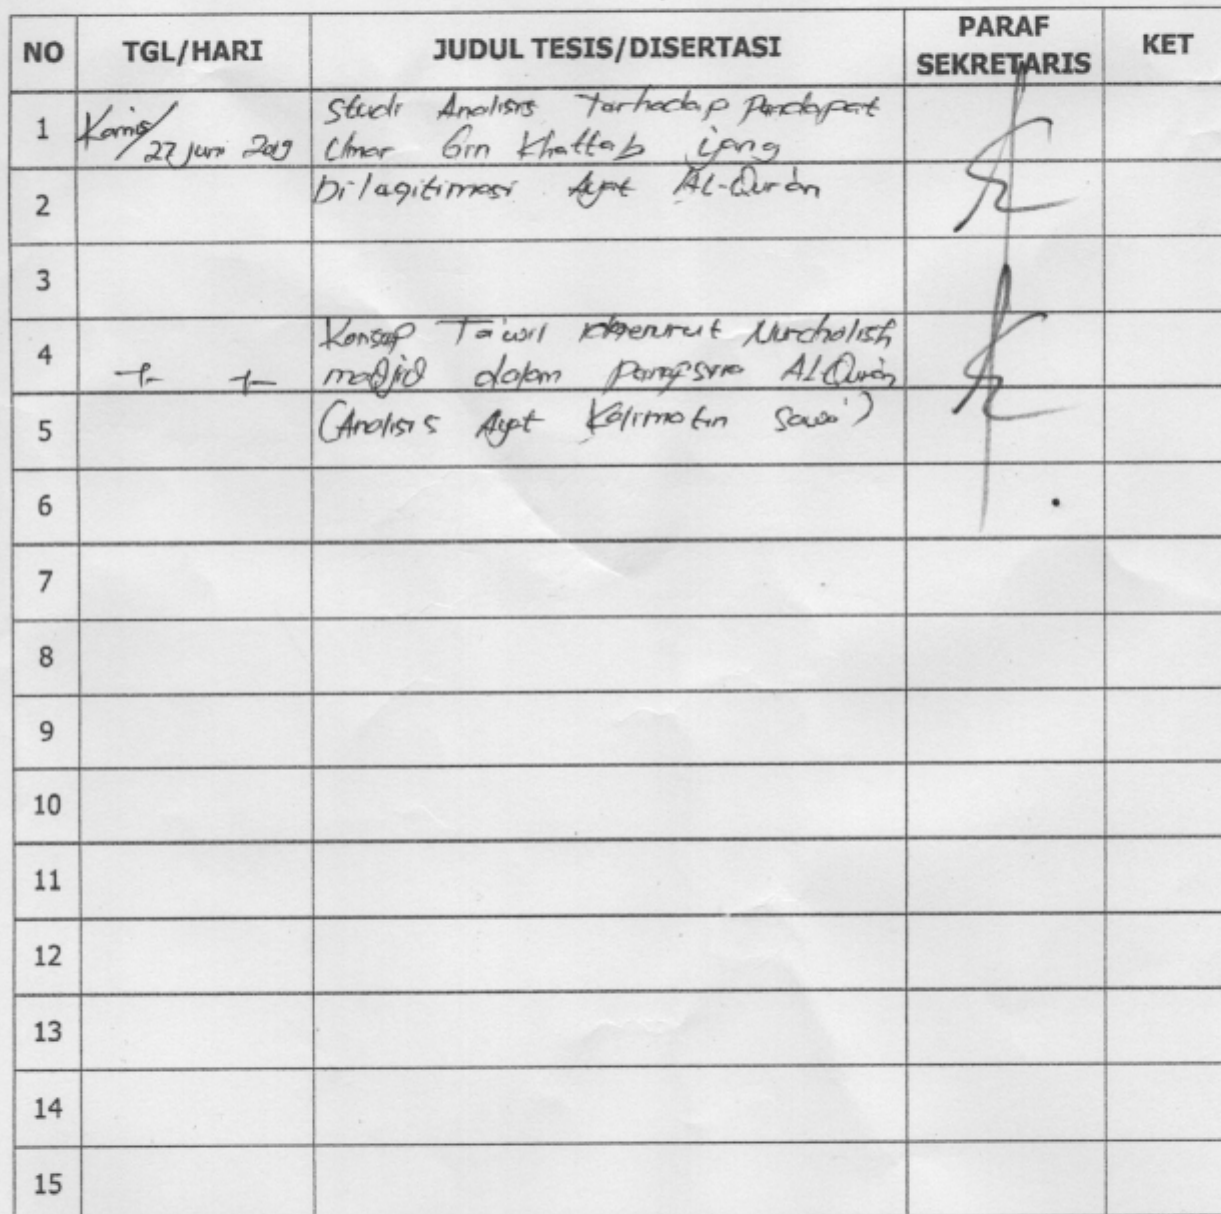 NO TGL/HARI JUDUL TESIS/DISERTASI PARAF SEKRETARIS KET
1 Kamis/ 27 Juni 2019 Studi Analisis Terhadap Pendapat
Umar bin Khattab yang
2 Dilagitimasi Ayat AL-Qur'an
3
4 Konsep Ta'wil menurut Nurcholish
madjid dalam AL-Qur'an
5 (Analisis Ayat Kalimatin Sawa')
6
7
8
9
10
11
12
13
14
15